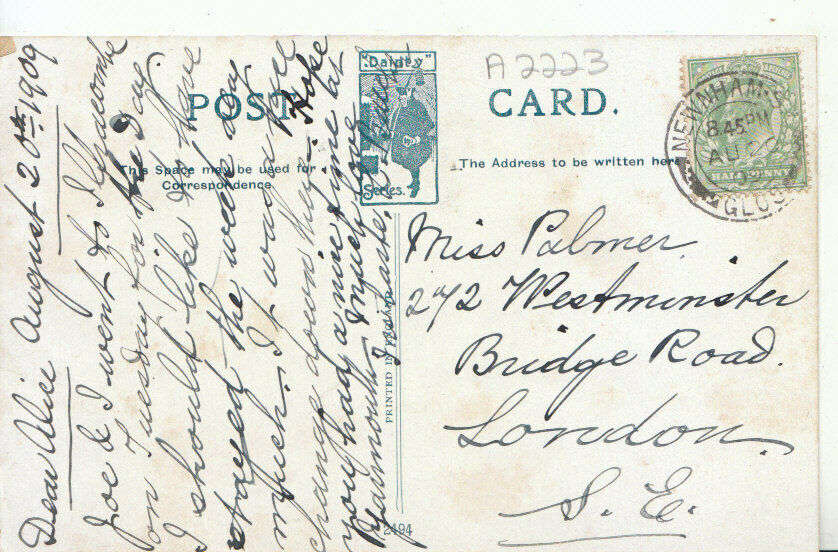 A2223
"Dainty"
Series.
POST CARD.
This Space may be used for
Correspondence.
The Address to be written here
NEWNHAM-S
8.45PM
AU 20
GLOS
HALFPENNY
Miss Palmer
272 Westminster
Bridge Road.
London.
S. E.
August 20th 1909
Dear Alice
Joe & I went to Ilfracombe
on Tuesday for the day.
I should like to have
stayed the week out
much. I want a
change down here. Hope
you had a nice time at
Yarmouth. Much love
In haste,
PRINTED IN
2494